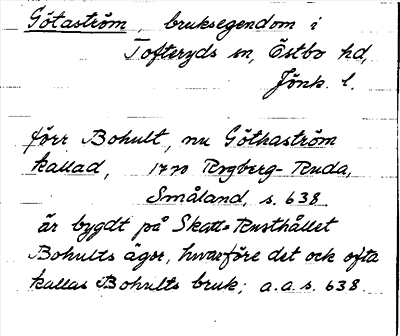 Götaström, bruksegendom i
Tofteryds sn, Östbo hd,
Jönk. l.
förr Bohult, nu Göthaström
kallad, 1770 Rogberg-Ruda,
Småland, s. 638
är bygdt på Skatte Rusthållet
Bohults ägor, hvarföre det ock ofta
kallas Bohults bruk; a.a.s. 638.